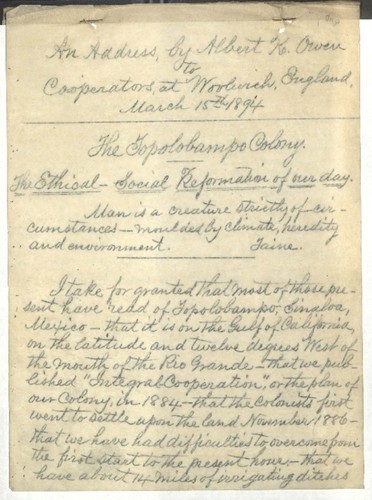 An Address, by Albert K. Owen
to
Cooperators, at Woolwich, England.
March 15th 1894
The Topolobampo Colony.
The Ethical - Social Reformation of our day.
Man is a creature strictly of cir-
cumstances - moulded by climate, heredity
and environment. Taine.
I take for granted that most of those pre-
sent have read of Topolobampo, Sinaloa,
Mexico - that it is on the Gulf of California,
on the latitude and twelve degrees West of
the mouth of the Rio Grande - that we pub-
lished "Integral Cooperation", or the plan of
our Colony, in 1884 - that the colonists first
went to settle upon the land November 1886 -
that we have had difficulties to overcome from
the first start to the present hour, - that we
have about 14 miles of irrigating ditches